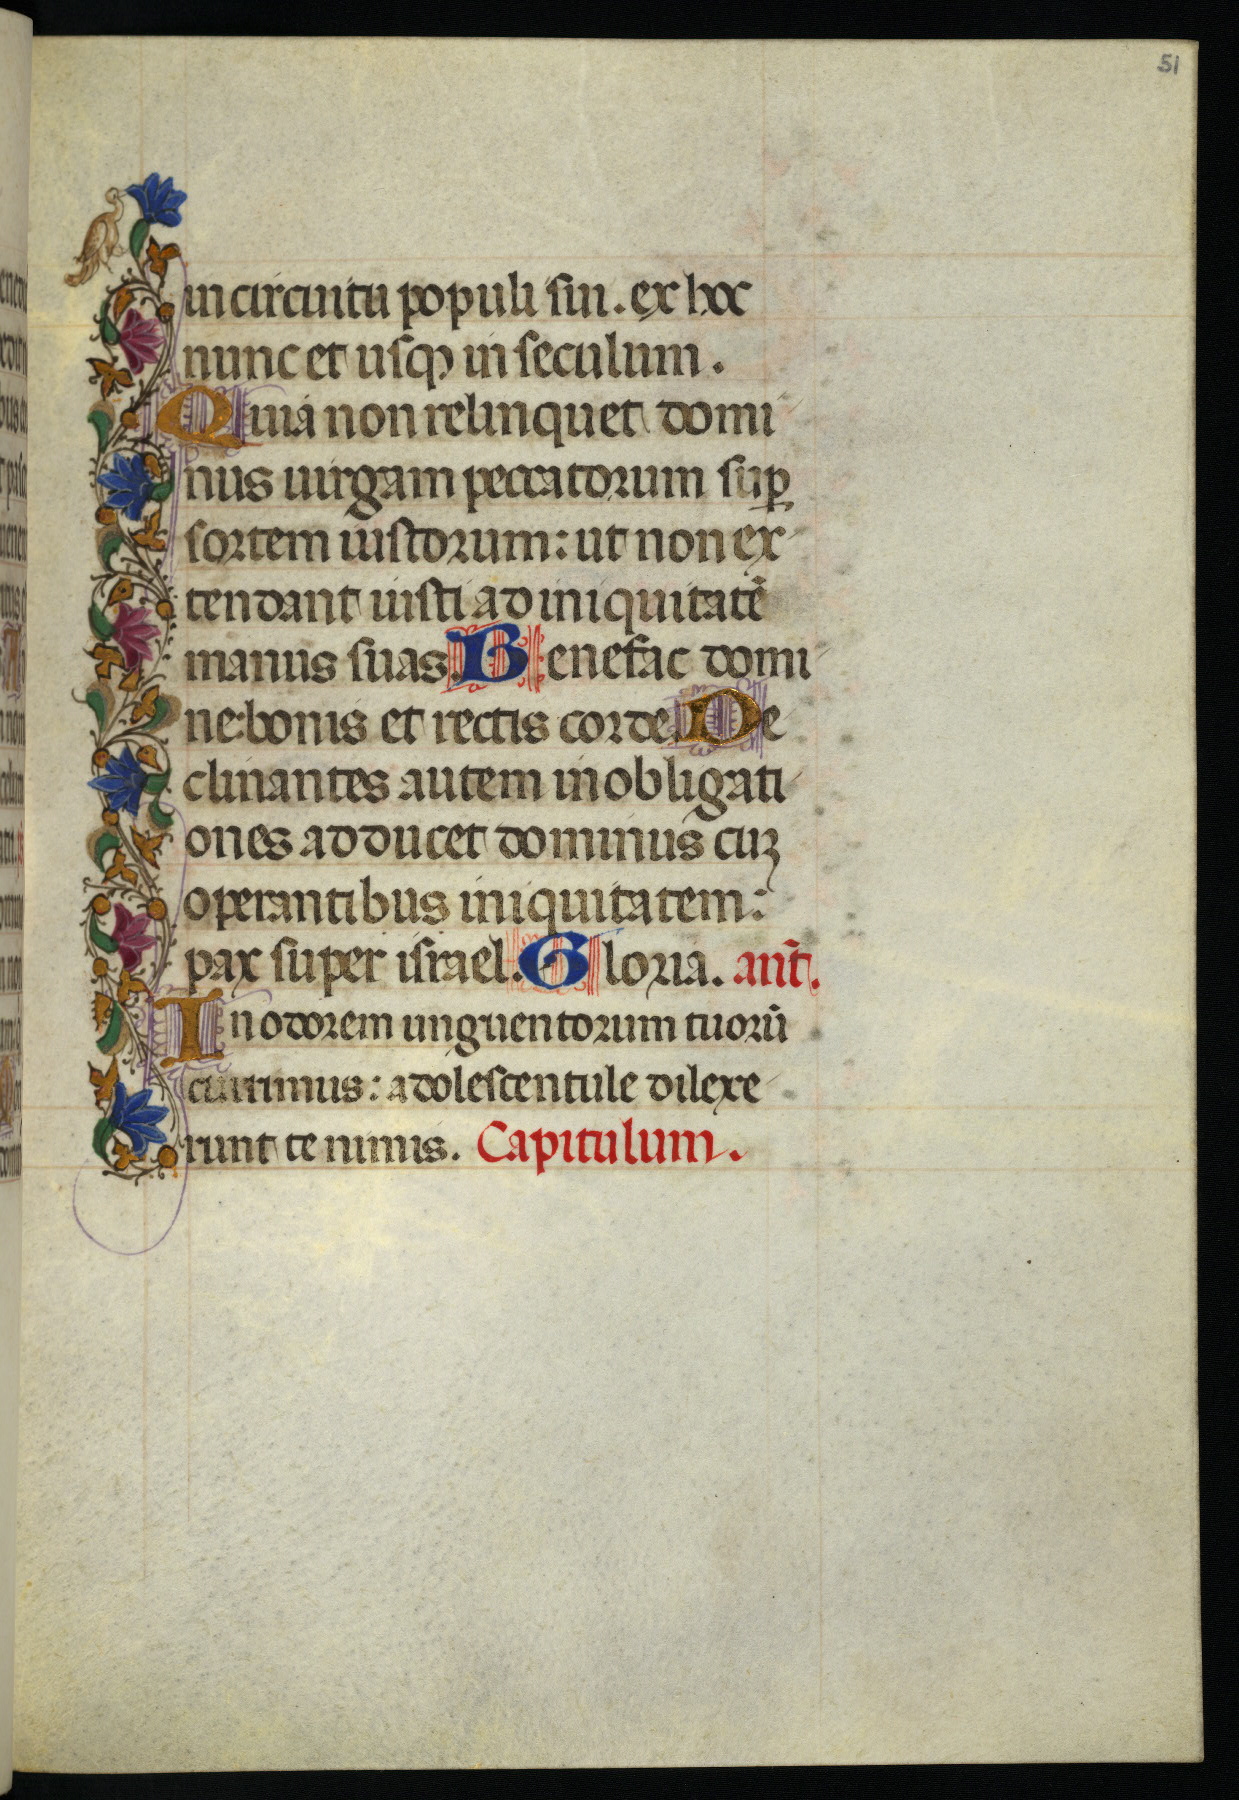 51
in circuitu populi sui. ex hoc
nunc et usqꝫ in seculum.
Quia non relinquet domi
nus uirgam peccatorum suꝑ
sortem iustorum: ut non ex
tendant iusti ad iniquitatē
manus suas. Benefac domi
ne: bonis et rectis corde. De
clinantes autem in obligati
ones adducet dominus cuꝫ
operantibus iniquitatem:
pax super israel. Gloria. ant̄.
In odorem unguentorum tuorū
currimus: adolescentule dilexe
runt te nimis. Capitulum.